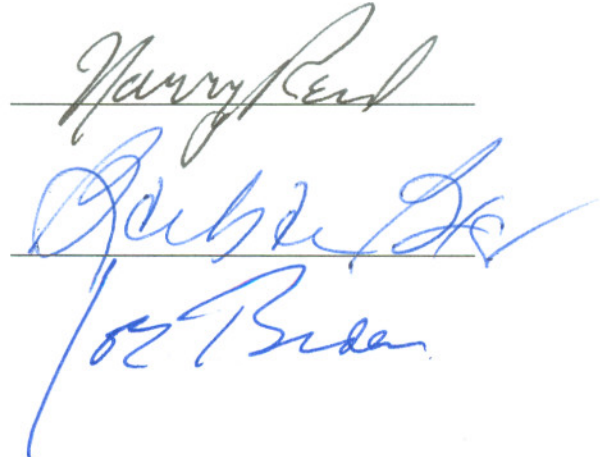 Harry Reid
Barbara
Joe Biden